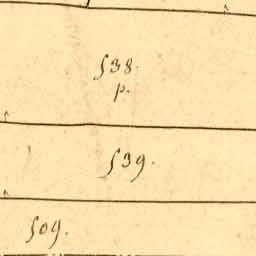 538.
p.
539.
509.